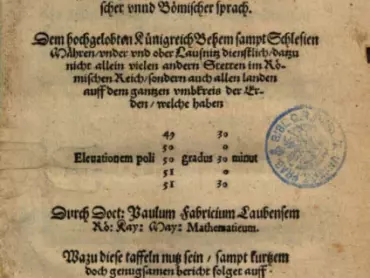 scher vnnd Bömischer sprach.
Dem hochgelobten Künigreich Behem sampt Schlesien
Mähren/vnder vnd ober Lausnitz dienstlich/datzu
nicht allein vielen andern Stetten im Rö-
mischen Reich/sondern auch allen landen
auff dem gantzen vmbkreis der Er-
den/welche haben
49 30
50 0
Eleuationem poli 50 gradus 30 minut
51 0
51 30
Durch Doct: Paulum Fabricium Laubensem
Rö: Kay: May: Mathematicum.
Wazu diese taffeln nutz sein/sampt kurtzem
doch genugsamen bericht folget auff